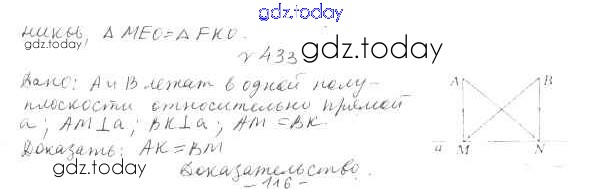 gdz.today
ников, △ MEO = △ FKO.
gdz.today
№ 433
gdz.today
Дано: A и B лежат в одной полу-
плоскости относительно прямой
a; AM⊥a; BK⊥a; AM = BK.
Доказать: AK = BM
Доказательство.
A B
a M N
- 116 -
gdz.today